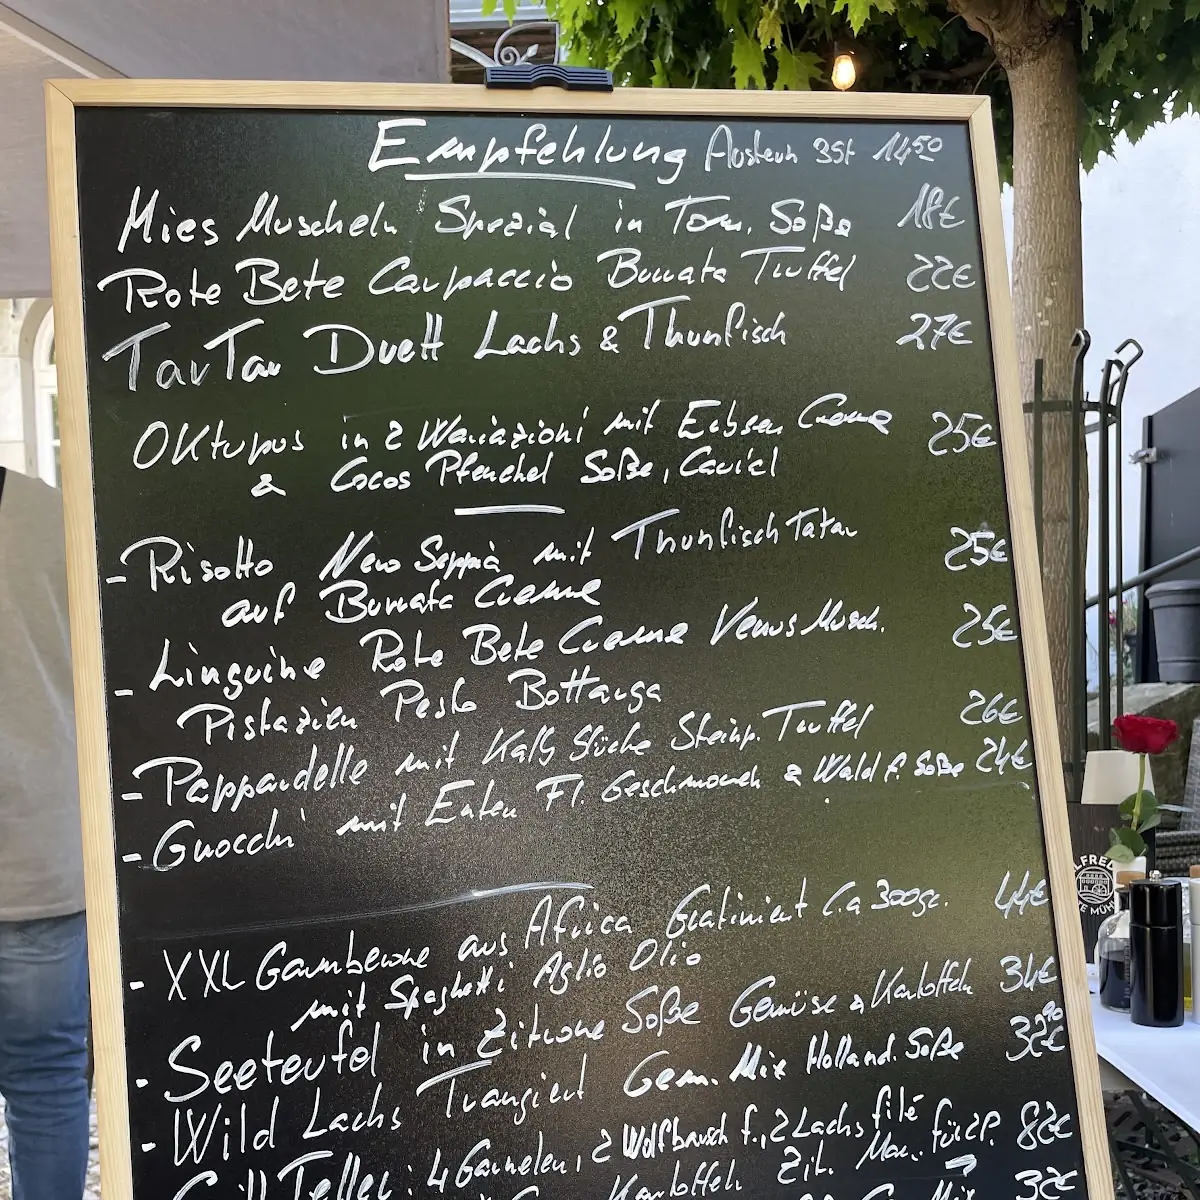 Empfehlung Austern 3St 1450
Mies Muscheln Spezial in Tom. Soße 18€
Rote Bete Carpaccio Burrata Trüffel 22€
TarTar Duett Lachs & Thunfisch 27€
OKtupus in 2 Wariazioni mit Erbsen Creme 25€
& Cocos Pfenchel Soße, Caviel
- Risotto Nero Seppia mit Thunfisch Tatar 25€
auf Burrata Creme
- Linguine Rote Bete Creme Venus Musch. 25€
Pistazien Pesto Bottarga
- Pappardelle mit Kalb Stücke Steinp. Trüffel 26€
- Gnocchi mit Enten Fl. Geschmoreh & Wald P. Soße 24€
- XXL Gamberone aus Africa Gratiniert C.a 300gr. 44€
mit Spaghetti Aglio Olio
- Seeteufel in Zitrone Soße Gemüse & Kartoffeln 34€
- Wild Lachs Trangiert Gem. Mix Holland. Soße 32,90€
Teller: 4 Garnelen, 2 Wolfbarsch f., 2 Lachs filé für 2P. 82€
Kartoffeln Zit. Mar.
Mix 32€
ALFRED